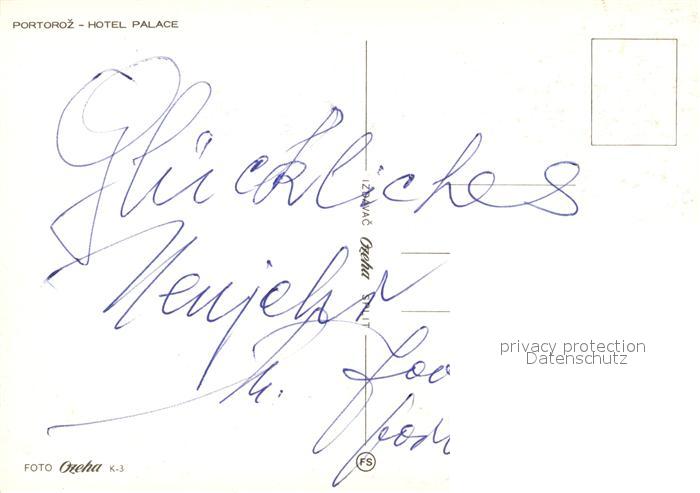 PORTOROŽ – HOTEL PALACE
Glückliches
Neujahr
IZDAVAČ Ozeha SPLIT
privacy protection
Datenschutz
FOTO Ozeha K-3
FS